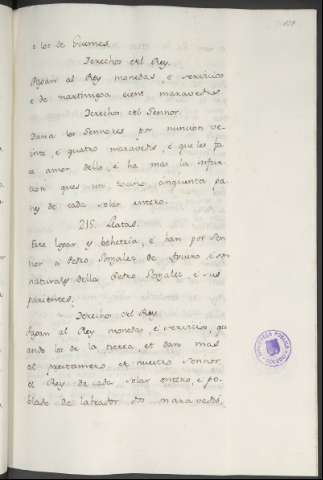 e los de Guemes.
Derechos del Rey.
Pagan al Rey monedas, e servicios
e de martiniega cient maravedis
Derechos del Sennor.
Davan los Sennores por nuncion ve-
inte, e quatro maravedis, e que les fa-
ce amor dello, e ha mas la infur-
cion ques un tocino, cinquenta pa-
nes de cada solar entero.
215. Llatas.
Este logar es behetria, e han por Sen-
nor a Pedro Gonzales de Aguero, e son
naturales della Pedro Gonzales, e sus
parientes.
Derechos del Rey.
Pagan al Rey monedas, e servicios, qu-
ando los de la tierra, et dan mas
al prestamero et nuestro Sennor
el Rey de cada solar entero, e po-
blado de labrador dos maravedis,